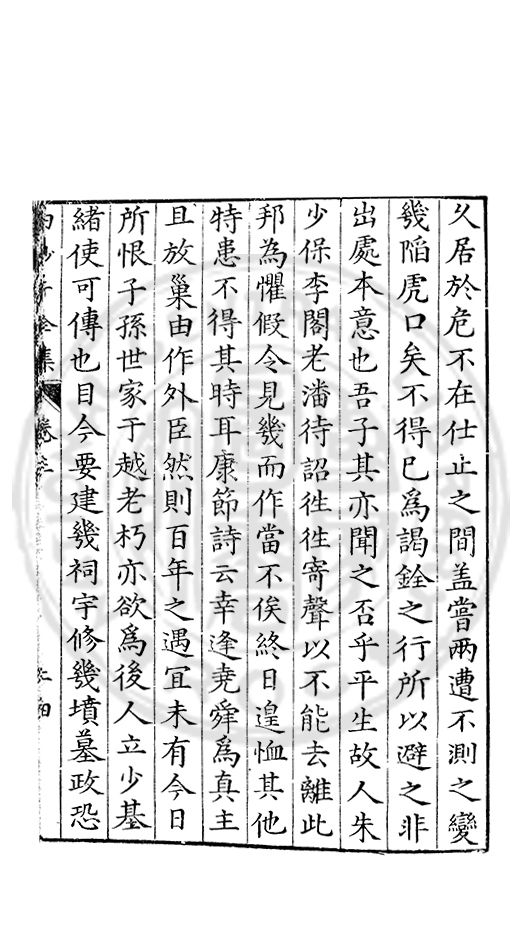 久居於危不在仕止之間盖嘗兩遭不測之變
幾陷虎口矣不得已爲謁銓之行所以避之非
出處本意也吾子其亦聞之否乎平生故人朱
少保李閣老潘待詔徃徃寄聲以不能去離此
邦為懼假令見幾而作當不俟終日遑恤其他
特患不得其時耳康節詩云幸逢堯舜爲真主
且放巢由作外臣然則百年之遇冝未有今日
所恨子孫世家于越老朽亦欲爲後人立少基
緒使可傳也目今要建幾祠宇修幾墳墓政恐
集 卷三